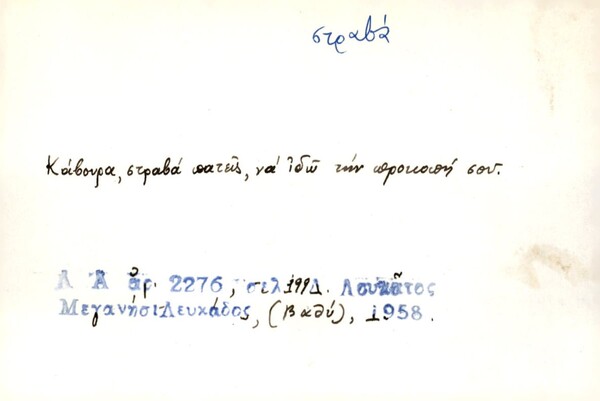 στραβά
Κάβουρα, στραβά πατεῖς, νά ἰδῶ τήν προκοπή σου.
Λ Α ἀρ. 2276, σελ. 199, Δ. Λουκᾶτος
Μεγανήσι Λευκάδος, (Βαθύ), 1958.